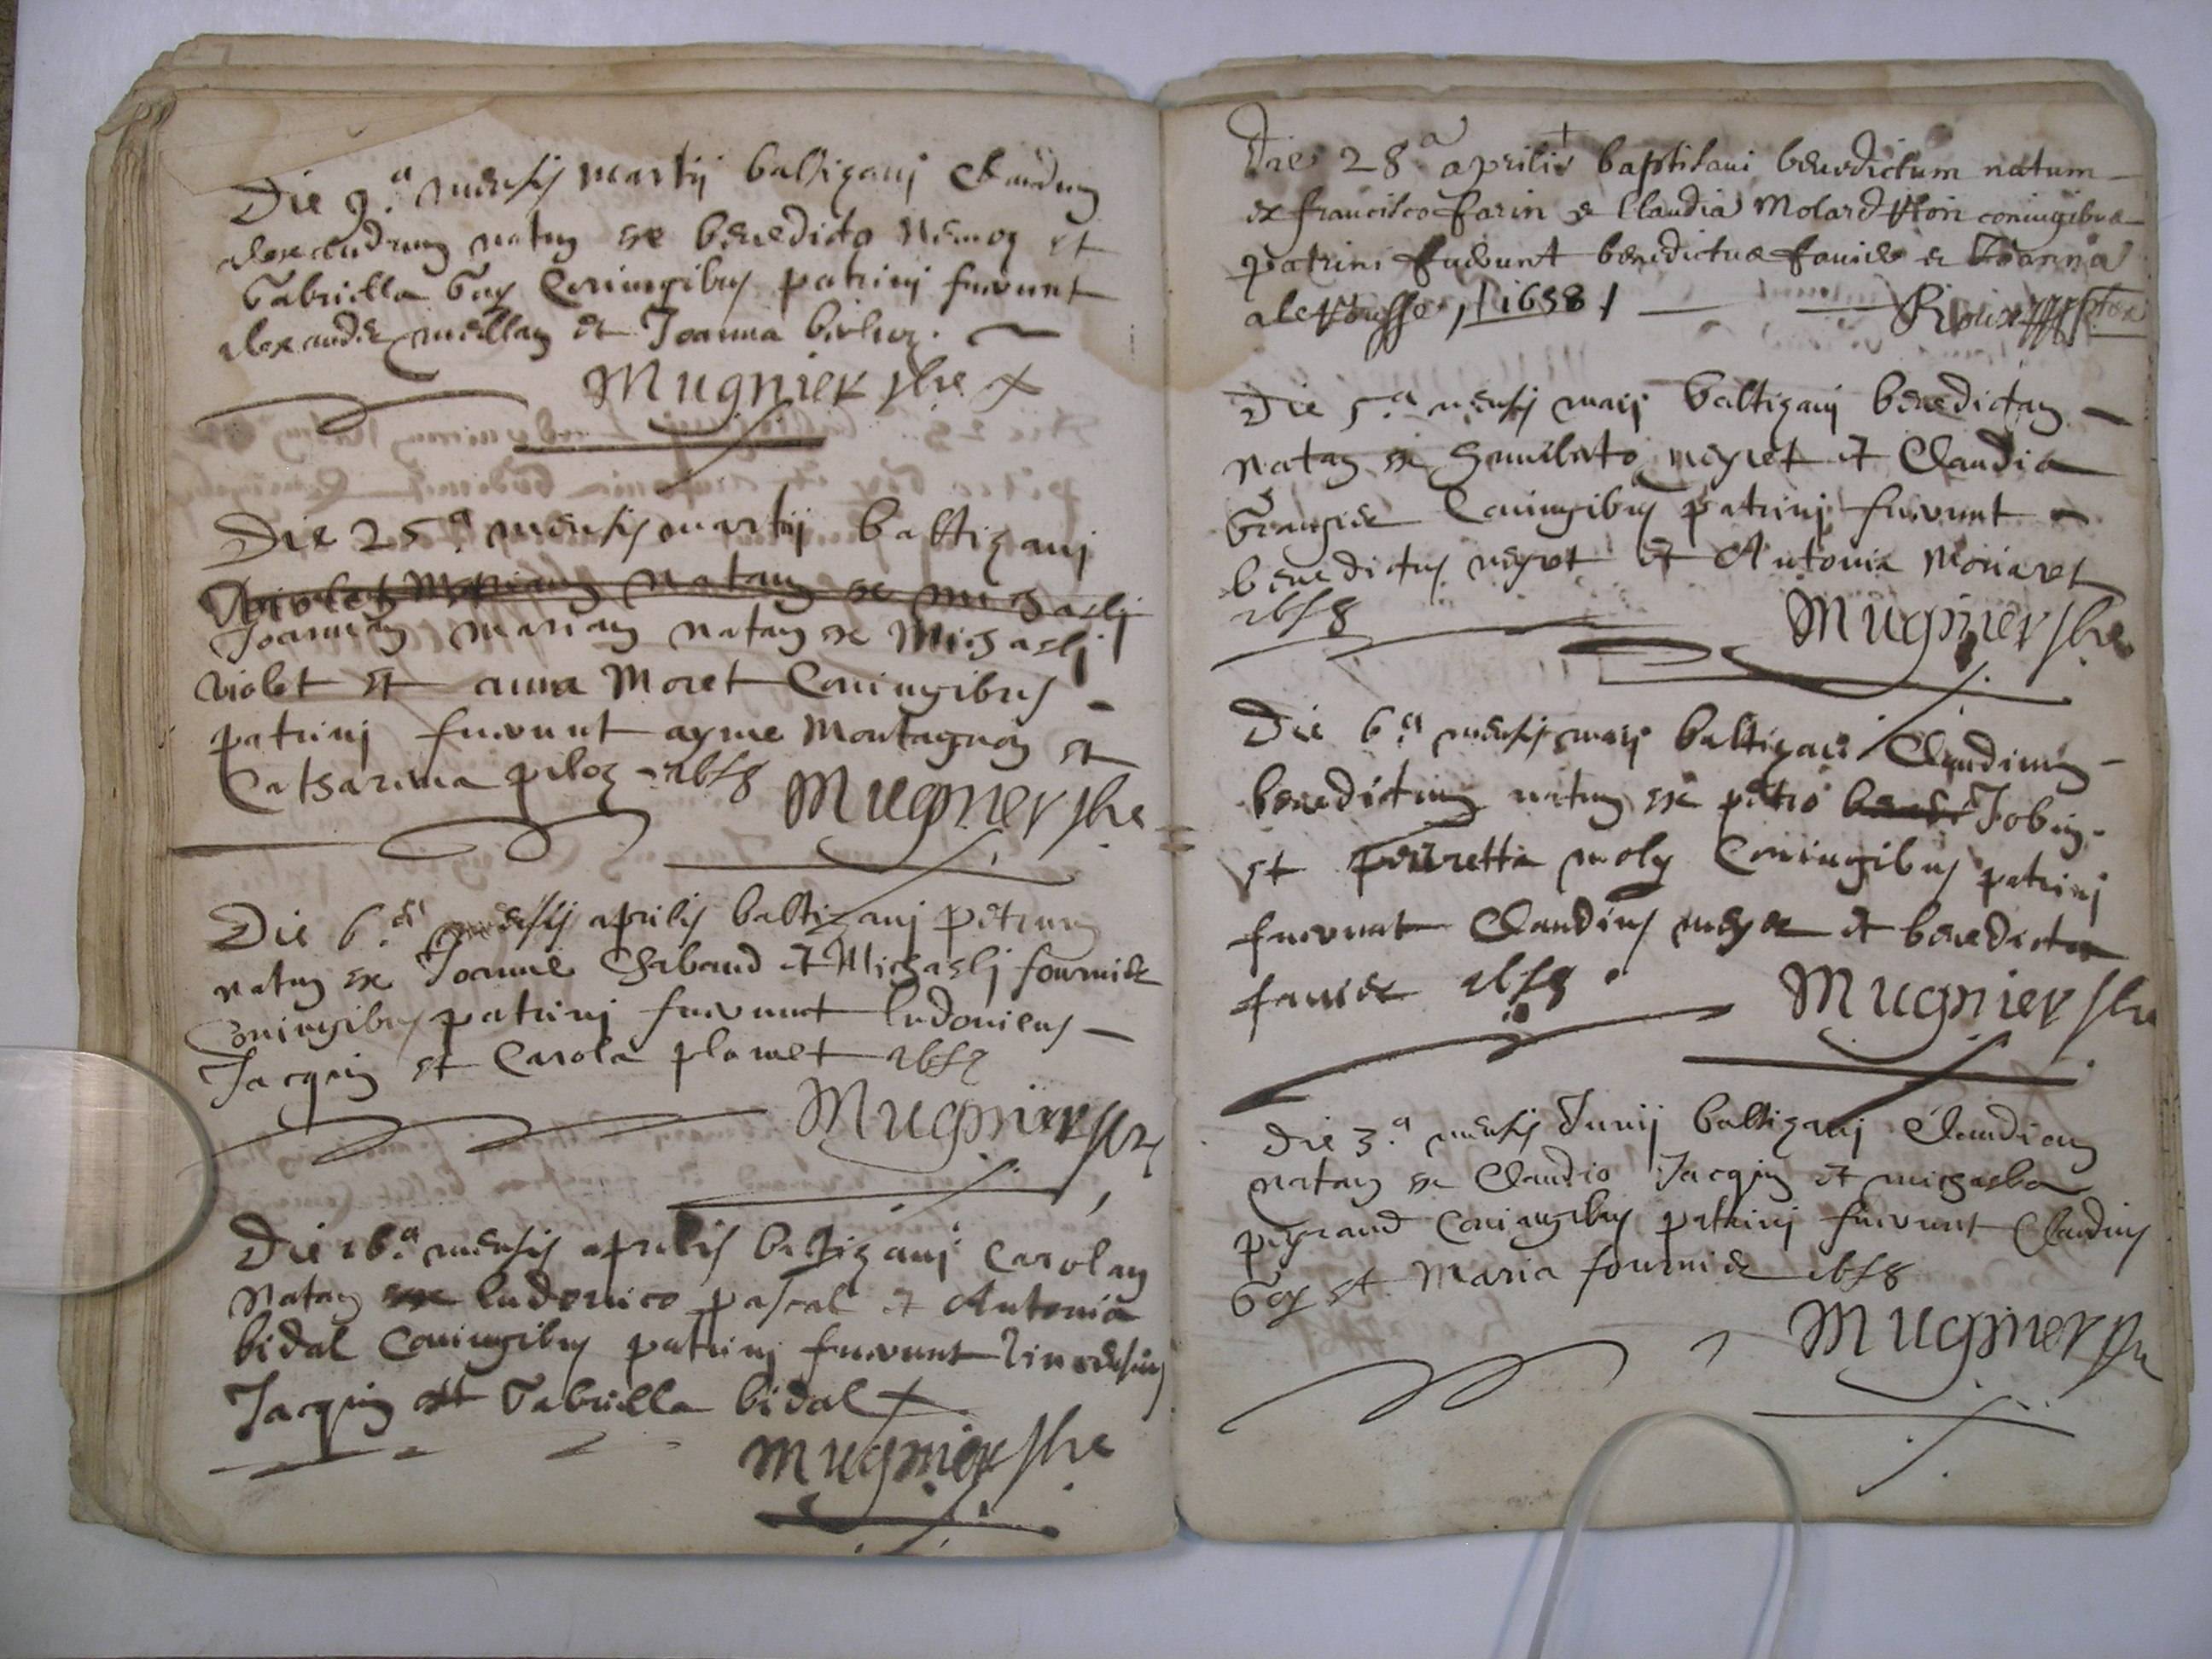 Die 9.a mensis martij baptizavj Claudum
Alexandrum natum ex benedicto et
Gabriella Gay Coniugibus patrinj fuerunt
Alexander et Joanna
Mugnier
Die 25.a mensis martij baptizavj
natam ex michaelj
Joannam mariam natam ex Michaelj
violet et anna Moret Coniugibus
patrinj fuerunt ayme Montagnon et
Catharina piloz - 1658 Mugnier
Die 6.a mensis aprilis baptizavj petrum
natum ex Joanne Chabaud et Michaelj fournier
Coniugibus patrinj fuerunt ludovicus
Jacquin et Carola plamet 1658
Mugnier
Die 16.a mensis aprilis baptizavj Carolam
Natam ex ludovico pascal et Antonia
bidal Coniugibus patrinj fuerunt
Jacquin et Gabriella bidal
Mugnier
Die 28a aprilis baptisavi benedictum natum
ex francisco farin & Claudia Molard coniugibus
patrini fuerunt benedictus favier & Joanna
/1658/
Die 5.a mensis maij baptizavj benedictam
Natam ex humberto meyret et Claudia
Grangier Coniugibus patrinj fuerunt
benedictus meyret et Antonia Moriaret
1658 Mugnier
Die 6.a mensis maij baptizavi Claudium
benedictum natum ex petro Jobin
et perretta moly Coniugibus patrinj
fuerunt Claudius et benedicta
favier 1658 Mugnier
Die 3.a mensis Junij baptizavj Claudiam
natam ex Claudio Jacquin et michaela
pegrand Coniugibus patrinj fuerunt Claudius
Gay et Maria fournier 1658
Mugnier